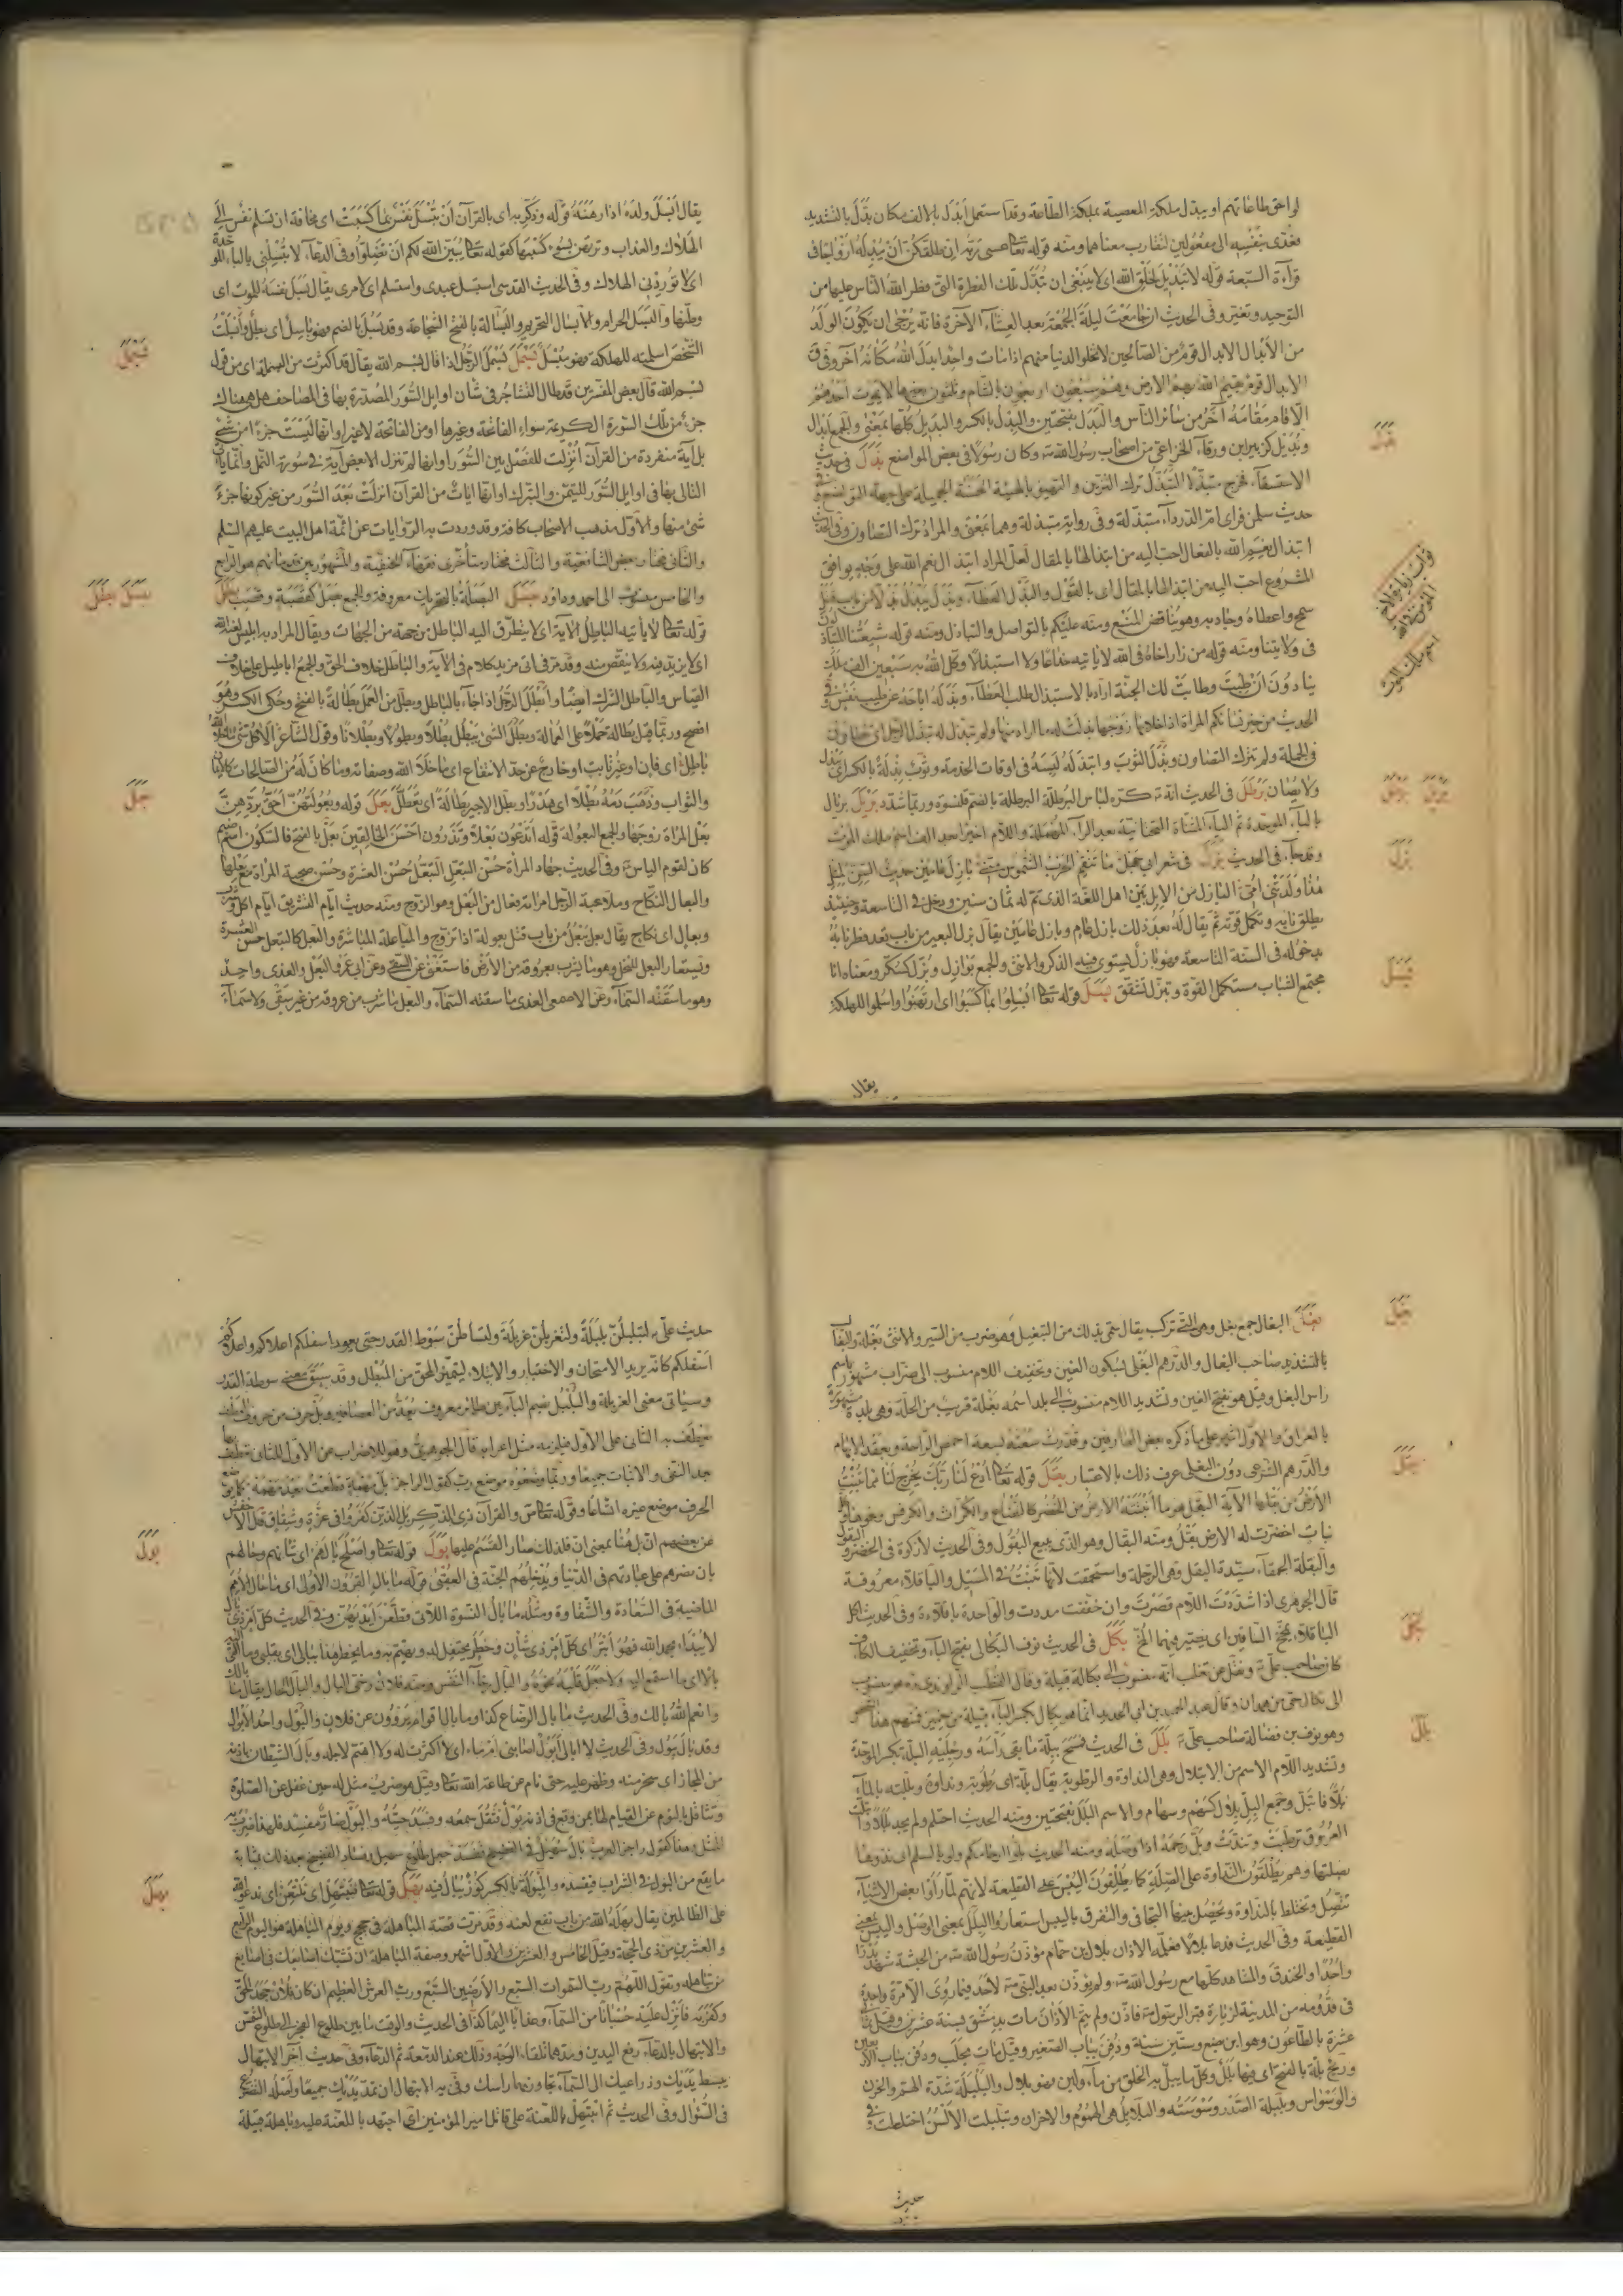 لواحق طاعاتهم او يبدل ملكة المعصية بملكة الطاعة وقد استعمل أبدل بالالف مكان بدّل بالتشديد
فعدى بنفسه الى مفعولين لتقارب معناهما ومنه قوله تعالى عسى ربه ان طلقكن أن يبدله ازواجا في
قراءة السبعة قوله لا تبديل لخلق الله اى لا ينبغى ان تبدل تلك الفطرة التى فطر الله الناس عليها من
التوحيد وتغير وفى الحديث ان جامعت ليلة الجمعة بعد العشاء الآخرة فانه يرجى ان يكون الولد
من الأبدال الابدال قوم من الصالحين لا تخلو الدنيا منهم اذا مات واحد ابدل الله مكانه آخر وفى ق
الابدال قوم يقيم الله بهم الارض وهم سبعون اربعون بالشام وثلثون بغيرها لا يموت احدهم
الا قام مقامه آخر من سائر الناس والبدل بفتحتين والبدل بالكسر والبديل كلها بمعنى والجمع ابدال
وبديل كزبير ابن ورقاء الخزاعى من اصحاب رسول الله ص وكان رسولا في بعض المواضع بذل فى حديث
الاستسقاء فخرج متبذلا التبذل ترك التزين والتهيؤ بالهيئة الحسنة الجميلة على جهة التواضع
حديث سلمن فراى ام الدرداء متبذلة وفى رواية مبتذلة وهما بمعنى والمراد ترك التصاون وفى الحديث
ابتذال نعم الله بالفعال احب اليه من ابتذالها بالمقال لعل المراد ابتذال النعم الله على وجه يوافق
المشروع احب اليه من ابتذالها بالمقال اى بالقول والبذل العطاء وبذل يبذل بذلا من باب قتل
سمح واعطاه وجاد به وهو يناقض المنع ومنه عليكم بالتواصل والتباذل ومنه قوله شيعتنا المتباذلون
فى ولايتنا ومنه قوله من زار اخاه فى الله لا ياتيه خداعا ولا استبذالا وكل الله به سبعين الف ملك
ينادون أن طبت وطابت لك الجنة اراد بالاستبذال طلب العطاء وبذله اباحه عن طيب نفس وفى
الحديث من خير نسائكم المراة اذا خلا بها زوجها بذلت له ما اراد منها ولم تبذل له تبذل الرجل اى
فى الجملة ولم تترك التصاون وبذل الثوب وابتذله لبسه فى اوقات الخدمة وثوب بذلة بالكسر اى يبتذل
ولا يصان برطل فى الحديث انه ص كره لباس البرطلة البرطلة بالضم قلنسوة وربما شدد بريل بريال
بالباء الموحدة ثم الياء المثناة التحتانية بعد الراء المهملة واللام اخيرا بعد الف اسم ملك الموت
وقد جاء فى الحديث بزل فى شعر ابى جهل ما تنقم الحرب الشموس منى بازل عامين حديث السن لمثل
هذا ولدتنى امى البازل من الابل عند اهل اللغة الذى تم له ثمان سنين ودخل فى التاسعة وحينئذ
يطلع نابه وتكمل قوته ثم يقال له بعد ذلك بازل عام وبازل عامين يقال بزل البعير من باب قعد فطر نابه
بدخوله فى السنة التاسعة فهو بازل يستوى فيه الذكر والانثى والجمع بوازل وبزل كسكر ومعناه انا
مجتمع الشباب مستكمل القوة وتبزل تشقق بسل قوله تعالى ابسلوا بما كسبوا اى ارتهنوا واسلموا للهلكة
يقال
بذل
برطل بريل
بزل
بسل
يقال أبسل ولده اذا رهنه قوله وذكر به اى بالقرآن أن تبسل نفس بما كسبت اى مخافة ان تسلم نفس الى
الهلاك والعذاب وترتهن بسوء كسبها كقوله تعالى يبين الله لكم ان تضلوا وفى الدعاء لا تبسلنى
اى لا توردنى الهلاك وفى الحديث القدسى استبسل عبدى واستسلم اى لامرى يقال تبسل نفسه للموت اى
وطنها والبسل الحرام والابسال التحريم والبسالة بالفتح الشجاعة وقد بسل بالضم فهو باسل اى بطل وأبسلت
الشخص اسلمته للهلكة فهو مبسل بسمل بسمل الرجل اذا قال بسم الله يقال قد اكثرت من البسملة اى من قول
بسم الله قال بعض المفسرين قد طال التشاجر فى شأن اوايل السور المصدرة بها فى المصاحف هل هى هناك
جزء من تلك السورة الكريمة سواء الفاتحة وغيرها او من الفاتحة لا غير او انها ليست جزءا من شىء
بل آية منفردة من القرآن أنزلت للفصل بين السور او انها لم تنزل الا بعض آية فى سورة النمل وانما يأتى
التالى بها فى اوايل السور للتيمن والتبرك او انها ايات من القرآن انزلت بعدد السور من غير كونها جزءً
شئ منها والاول مذهب الاصحاب كافة وقد وردت به الروايات عن ائمة اهل البيت عليهم السلم
والثانى مختار بعض الشافعية والثالث مختار متأخرى فقهاء الحنفية والمشهور بين قدمائهم هو الرابع
والخامس منسوب الى احمد وداود بصل البصلة بالتحريك معروفة والجمع بصل كقصبة وقصب بطل
قوله تعالى لا يأتيه الباطل الآية اى لا يتطرق اليه الباطل من جهة من الجهات ويقال المراد به ابليس لعنه الله
اى لا يزيد فيه ولا ينقص منه وقد مر فى اتى مزيد كلام فى الآية والباطل خلاف الحق والجمع اباطيل على خلاف
القياس والباطل الشرك ايضا وأبطل الرجل اذا جاء بالباطل وبطل من العمل بطالة بالفتح وحكى الكسر وهو
افصح وربما قيل بطالة حملا على العمالة وبطل الشئ يبطل بطلا وبطولا وبطلانا وقول الشاعر الا كل شئ ما خلا الله
باطل اى فان او غير ثابت او خارج عن حد الانتفاع اى ما خلا الله وصفاته وما كان له من الصالحات كالايمان
والثواب وذهب دمه بطلا اى هدرا وبطل الاجير بطالة اى تعطل بعل قوله وبعولتهن أحق بردهن
بعل المراة زوجها والجمع البعولة قوله اتدعون بعلا وتذرون احسن الخالقين بعل بالفتح فالسكون اسم صنم
كان لقوم الياس ع وفى الحديث جهاد المرأة حسن التبعل التبعل حسن العشرة وحسن صحبة المرأة مع بعلها
والبعال النكاح وملاعبة الرجل امراته فعال من البعل وهو الزوج ومنه حديث ايام التشريق ايام اكل وشرب
وبعال اى نكاح يقال بعل يبعل من باب قتل بعولة اذا تزوج والمباعلة المباشرة والتبعل كالبعل حسن العشرة
وتستعار البعل للنخل وهو ما يشرب بعروقه من الأرض فاستغنى عن السقى وعن ابى عمرو البعل والعذى واحد
وهو ما سقته السماء وعن الاصمعى العذى ما سقته السماء والبعل ما شرب من عروقه من غير سقى ولا سماء
بسمل
بصل بطل
بعل
بغل البغال جمع بغل وهى التى تركب يقال سمى بذلك من التبغيل وهو ضرب من السير والانثى بغلة والبغال
بالتشديد صاحب البغال والدرهم البغلى بسكون الغين وتخفيف اللام منسوب الى ضراب مشهور باسم
راس البغل وقيل هو بفتح الغين وتشديد اللام منسوب الى بلد اسمه بغلة قريب من الحلة وهى بلدة مشهورة
بالعراق والاول اشهر على ما ذكره بعض العارفين وقدرت سعته بسعة اخمص الراحة وبعقد الابهام
والدرهم الشرعى دون البغلى عرف ذلك بالاعتبار بقل قوله تعالى ادع لنا ربك يخرج لنا مما تنبت
الارض من بقلها الآية البقل هو ما أنبتته الارض من الخضر كالنعناع والكراث والكرفس ونحوها وكل
نبات اخضرت له الارض بقل ومنه البقال وهو الذى يبيع البقول وفى الحديث لا زكوة فى الخضر والبقول
والبقلة الحمقاء سيدة البقل وهى الرجلة واستحمقت لانها تنبت فى المسيل والباقلاء معروفة
قال الجوهرى اذا شددت اللام قصرت وان خففت مددت والواحدة باقلاءة وفى الحديث اكل
الباقلاء يمخخ الساقين اى يصير فيهما المخ بكل فى الحديث نوف البكالى بفتح الباء وتخفيف الكاف
كان صاحب على ع ونقل عن ثعلب انه منسوب الى بكالة قبيلة وقال القطب الراوندى ره هو منسوب
الى بكال حى من همدان وقال عبد الحميد بن ابى الحديد انما هو بكال بكسر الباء قبيلة من حمير فمنهم هذا
وهو نوف بن فضالة صاحب على ع بلل فى الحديث فمسح ببلة ما بقى راسه ورجليه البلة بكسر الموحدة
وتشديد اللام الاسم من الابتلال وهى النداوة والرطوبة يقال بلة اى رطوبة ونداوة وبللته بالماء
بلا فابتل وجمع البل بلال كسهم وسهام والاسم البلل بفتحتين ومنه الحديث احتلم ولم يجد بللا وابتلت
العروق ترطبت وتندت وبل رحمه اذا وصله ومنه الحديث بلوا ارحامكم ولو بالسلم اى ندوها
بصلتها وهم يطلقون النداوة على الصلة كما يطلقون اليبس على القطيعة لانهم لما رأوا بعض الاشياء
تتصل وتختلط بالنداوة وتحصل بينهما التجافى والتفرق باليبس استعاروا البلل بمعنى الوصل واليبس بمعنى
القطيعة وفى الحديث فدعا بلالا فعلمه الاذان بلال بن حمام مؤذن رسول الله ص من الحبشة شهد بدرا
واحدا والخندق والمشاهد كلها مع رسول الله ص ولم يؤذن بعد النبى ص لأحد فيما روى الا مرة واحدة
فى قدومه من المدينة لزيارة قبر الرسول ص فاذن ولم يتم الأذان مات بدمشق لسنة عشرين وقيل ثمانى
عشرة بالطاعون وهو ابن بضع وستين سنة ودفن بباب الصغير وقيل مات بحلب ودفن بباب الاربعين
وريح بلة بالفتح اى فيها بلل وكل ما يبل به الحلق من ماء ولبن فهو بلال والبلبلة شدة الهم والحزن
والوسواس وبلبلة الصدر وسوسته والبلابل هى الهموم والاحزان وتبلبلت الالسن اختلطت وفى
حديث
بغل
بقل
بكل
بلل
حديث على ع لتبلبلن بلبلة ولتغربلن غربلة ولتساطن سوط القدر حتى يعود اسفلكم اعلاكم واعلاكم
اسفلكم كانه يريد الامتحان والاختبار والابتلاء ليتميز المحق من المبطل وقد سبق معنى سوطة القدر
وسياتى معنى الغربلة والبلبل بضم الباءين طائر معروف يعد من العصافير وبل حرف من حروف العطف
يعطف به الثانى على الأول فيلزمه مثل اعرابه قال الجوهرى وهو للاضراب عن الاول للثانى
بعد النفى والاثبات جميعا وربما وضعوه موضع رب كقول الراجز بل مهمة قطعت بعد مهمة كما يوضع
الحرف موضع غيره اتساعا وقوله تعالى ص والقرآن ذى الذكر بل الذين كفروا فى عزة وشقاق قال الاخفش
عن بعضهم ان بل هنا بمعنى ان فلذلك صار القسم عليها بول قوله تعالى واصلح بالهم اى شانهم وحالهم
بان نصرهم على عبادتهم فى الدنيا ويدخلهم الجنة فى العقبى قوله ما بال القرون الأولى اى ما حال الامم
الماضية فى السعادة والشقاوة ومثله ما بال النسوة اللاتى قطعن أيديهن وفى الحديث كل أمر ذى بال
لا يبدأ بحمد الله فهو أبتر اى كل أمر ذى شأن وخطر يحتفل له ويهتم به وما يخطر هذا ببالى اى بقلبى
بالا اى ما استمع اليه ولا جعل قلبه نحوه والبال رخاء النفس ومنه فلان رخى البال والبال الحال يقال ما بالك
وانعم الله بالك وفى الحديث ما بال الرضاع كذا وما بال اقوام يروون عن فلان والبول واحد الابوال
وقد بال يبول وفى الحديث لا ابالى أبول اصابنى ام ماء اى لا اكثرت له ولا اهتم لاجله وبال الشيطان باذنه
من المجاز اى سخر منه وظهر عليه حتى نام عن طاعة الله تعالى وقيل هو ضرب مثل له حين غفل عن الصلوة
وتثاقل بالنوم عن القيام لها بمن وقع فى اذنه بول فثقل سمعه وفسد حسه والبول ضار مفسد فلهذا ضرب به
المثل وهذا كقول راجز العرب بال سهيل فى الفضيخ ففسد جعل طلوع سهيل وفساد الفضيخ بعد ذلك بمثابة
ما يقع من البول فى الشراب فيفسده والمبولة بالكسر كوز يبال فيه بهل قوله تعالى فنبتهل اى نلتعن اى ندعو الله
على الظالمين يقال بهله الله من باب نفع لعنه وقد مرت قصة المباهلة فى حجج ويوم المباهلة هو اليوم الرابع
والعشرين من ذى الحجة وقيل الخامس والعشرين والاول اشهر وصفة المباهلة ان تشبك اصابعك فى اصابع
من تباهله وتقول اللهم رب السموات السبع والأرضين السبع ورب العرش العظيم ان كان فلان جحد الحق
وكفر به فانزل عليه حسبانا من السماء وعذابا اليما كذا فى الحديث والوقت ما بين طلوع الفجر الى طلوع الشمس
والابتهال بالدعاء رفع اليدين ومدهما تلقاء الوجه وذلك عند الدمعة ثم الدعاء وفى حديث آخر الابتهال
يبسط يديك وذراعيك الى السماء تجاوز بهما راسك وفى به الابتهال ان تمد يديك جميعا وأصله التضرع
فى السؤال وفى الحديث ثم ابتهل باللعنة على قاتل امير المؤمنين اى اجتهد باللعنة عليه وباهلة قبيلة
بول
بهل